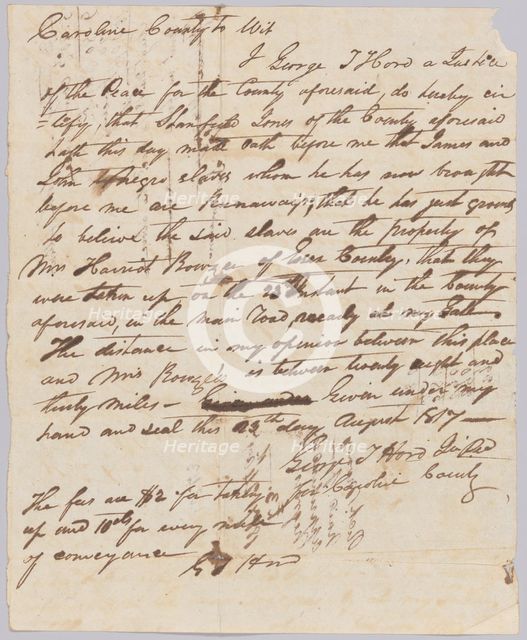 Caroline County to Wit
I George T Hord a Justice
of the Peace for the County aforesaid, do hereby cer
=tify, that Stanfield Jones of the County aforesaid
hath this day made oath before me that James and
John negro slaves whom he has now brought
before me are Runaways; that he has just grounds
to believe the said slaves are the property of
Mrs Harriot Rowzee of Essex County, that they
were taken up, on the Instant in the County
aforesaid, in the main road, nearly at my Gate
The distance in my opinion between this place
and Mrs Rowzee's is between twenty eight and
thirty miles - Given under my
hand and seal this 22th day August 1817 -
George T Hord
for Caroline County
The fees are $2 for taking
up and 10cts for every mile
of conveyance
G T Hord
Heritage
Heritage
Heritage
Heritage
Heritage
Heritage
Heritage
Heritage